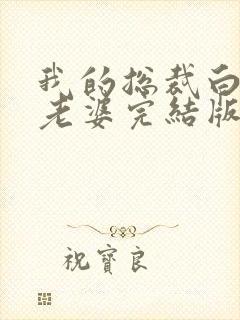 我的总裁白
老婆完結版
祝寶良